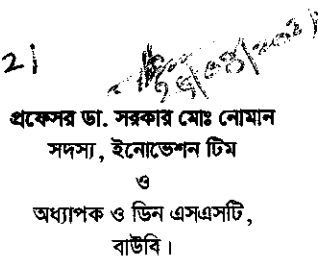 ২।
প্রফেসর ডা. সরকার মোঃ নোমান
সদস্য, ইনোভেশন টিম
ও
অধ্যাপক ও ডিন এসএসটি,
বাউবি।